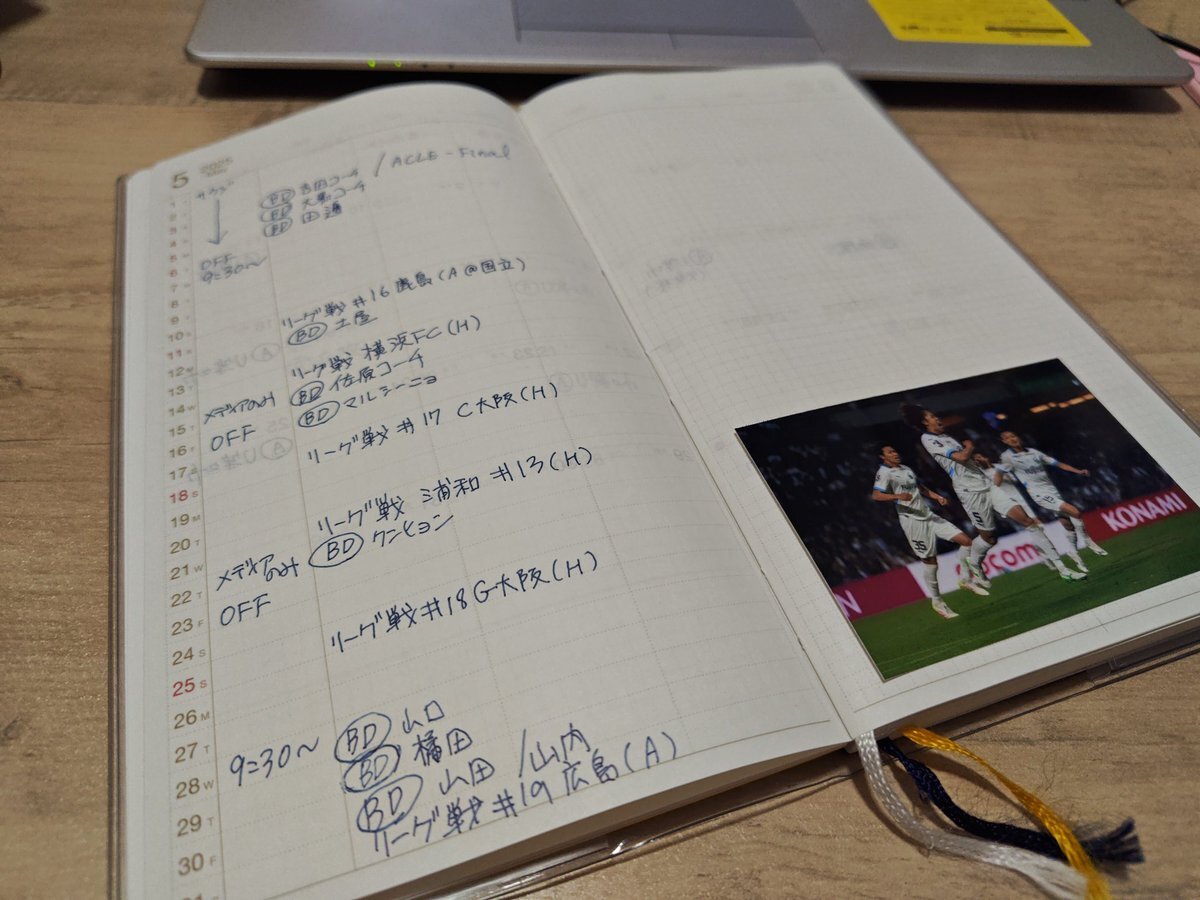 5 2025
サウジ
BD 吉田コーチ / ACLE - Final
BD コーチ
BD 田
1
2
3
4
5
6
OFF
7
9:30〜
8
9
10
リーグ戦 #16 鹿島(A@国立)
11
BD 土屋
12
13
14 W
リーグ戦 横浜FC(H)
メディアのみ
BD 佐原コーチ
15 T
OFF
BD マルシーニョ
16 F
17 S
リーグ戦 #17 C大阪(H)
18 S
19 M
20 T
リーグ戦 浦和 #13(H)
21 W
メディアのみ
BD クンヒョン
22 T
OFF
23 F
24 S
リーグ戦 #18 G大阪(H)
25 S
26 M
27 T
9:30〜
BD 山口
28 W
BD 橘田
29 T
BD 山田 / 山内
30 F
リーグ戦 #19 広島(A)
35
5
docomo
KONAMI